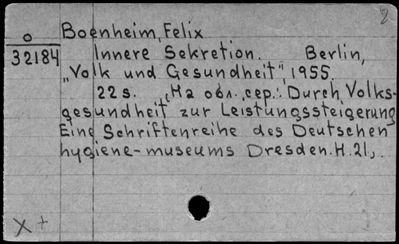 2
Boenheim, Felix
o
32184
Innere Sekretion. Berlin,
"Volk und Gesundheit", 1955.
22 s. (На обл. сер.: Durch Volks-
gesundheit zur Leistungssteigerung
Eine Schriftenreihe des Deutschen
hygiene-museums Dresden. H. 21).
X +